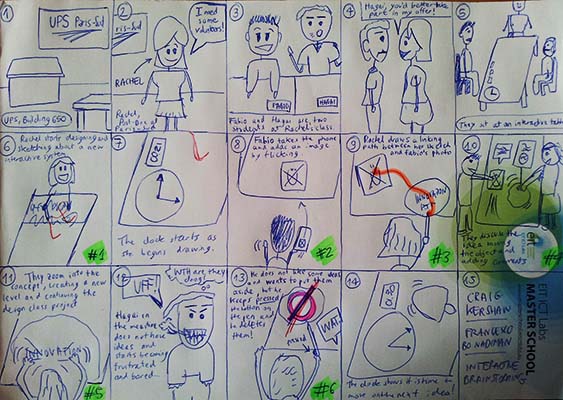 1
UPS Paris-Sud
UPS, Building 650
2
ris-Sud
I need
some
volunteers!
RACHEL
Rachel,
Post-Doc @
Paris-Sud
3
FABIO
HAGAI
Fabio and Hagai are two
students at Rachel's class.
4
Hagai, you'd better take
part in my offer!
5
They sit at an interactive table
6
Rachel starts designing and
sketching about a new
interactive system
#1
7
The clock starts as
she begins drawing.
8
Fabio takes the phone
and adds an image
by flicking
#2
9
Rachel draws a linking
path between her sketch
and Fabio's photo
INNOVATION
#3
10
They discuss the
idea moving
the objects and
adding comments
11
They zoom into the
concept, creating a new
level and continuing the
design class project
INNOVATION
#5
12
WTH are they
doing
UFF
Hagai in
the meantime
does not have
ideas and
starts becoming
frustrated
and bored...
13
He does not like some ideas
and wants to put them
aside but he
keeps pressed
the button on
the pen and
to deletes
them!
WAT
#6
14
The clock shows it is time to
move onto next idea!
15
CRAIG
KERSHAW
FRANCESCO
BONADIMAN
INTERACTIVE
BRAINSTORMING
EIT ICT Labs
MASTER SCHOOL